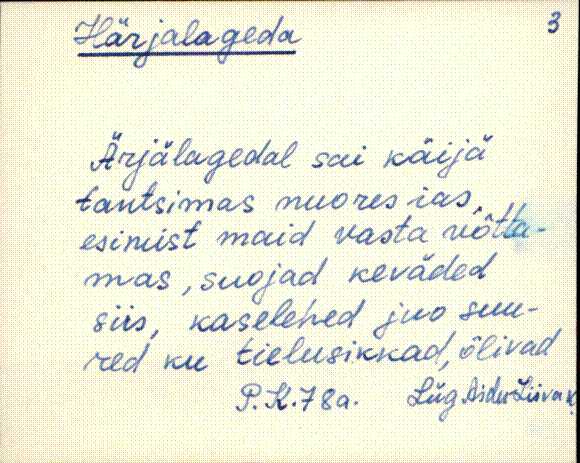 3
Härjalageda
Ärjälagedal sai käijä
tantsimas nuores ias,
esimist maid vasta võtta-
mas, suojad keväded
siis, kaselehed juo suu-
red ku tielusikkad, õlivad
P.K. 78a. Lüg Aidu-Liiva k.